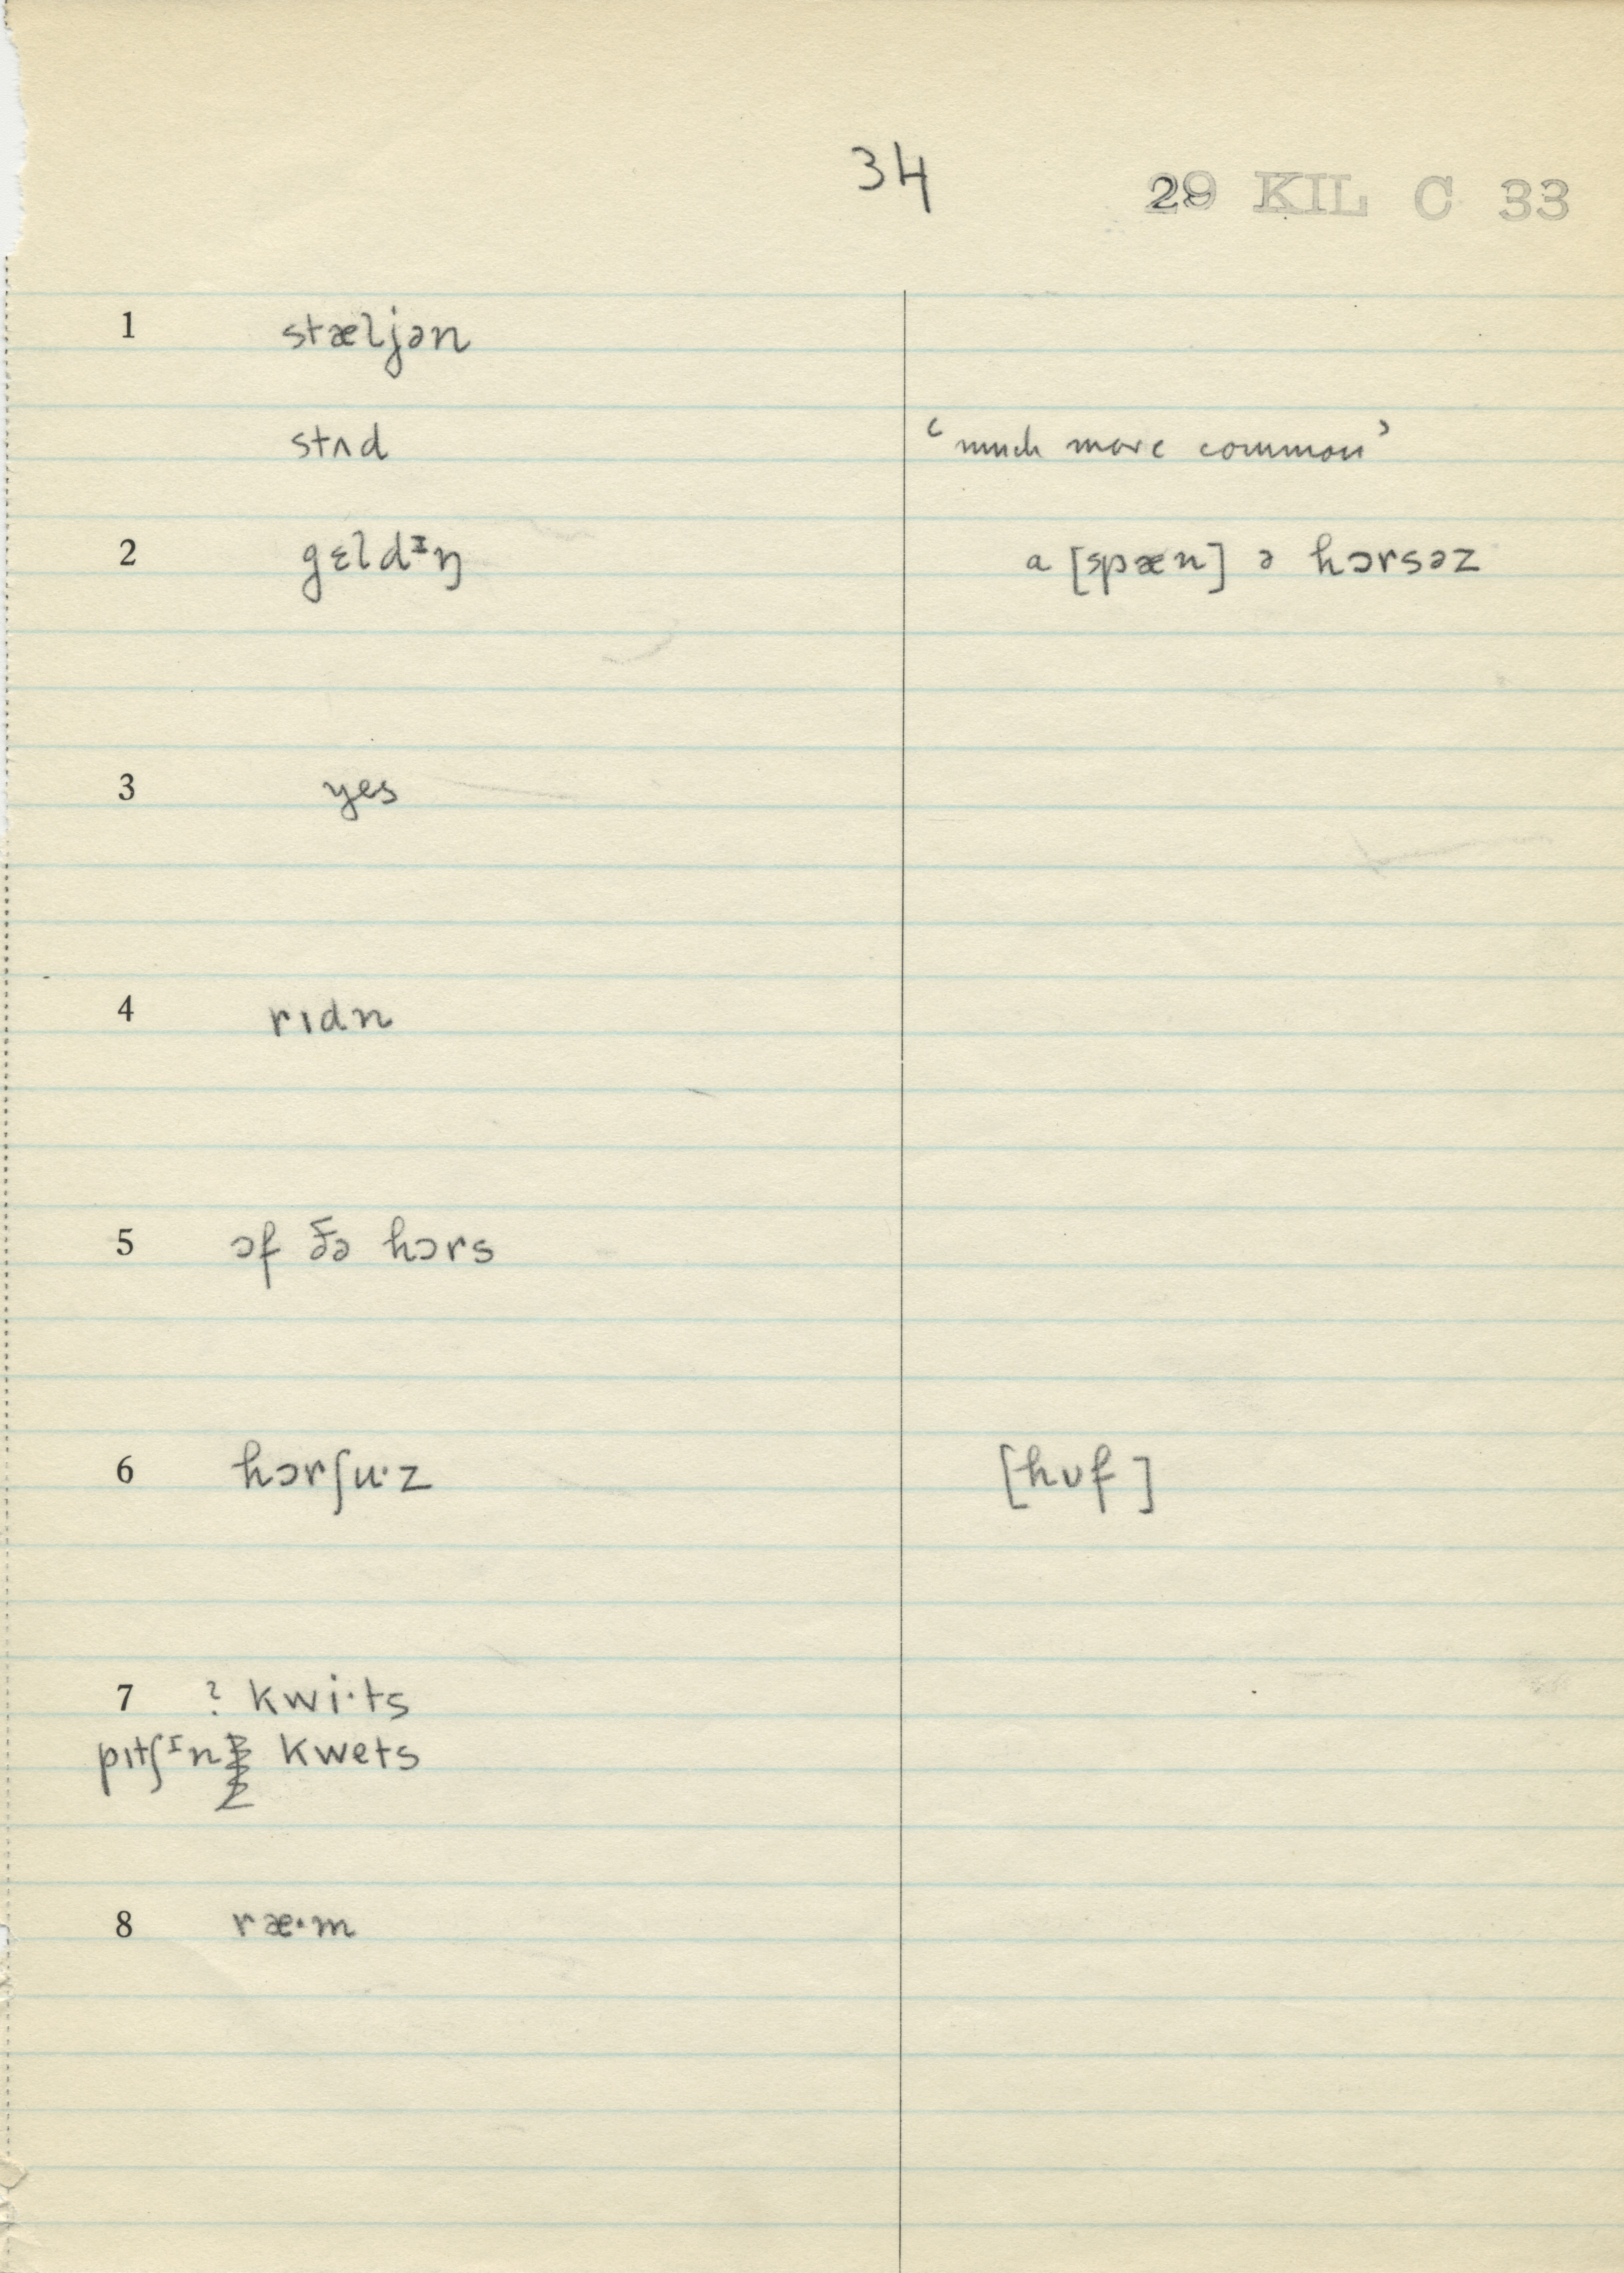 34
29 KIL C 33
1 stæljən
stʌd ‘much more common’
2 gɛldᶦŋ a [spæn] ə hɔrsəz
3 yes
4 rɪdn
5 ɔf ðə hɔrs
6 hɔrʃu·z [hʊf]
7 ? kwi·ts
pɪtʃᶦn kwets
8 ræ·m